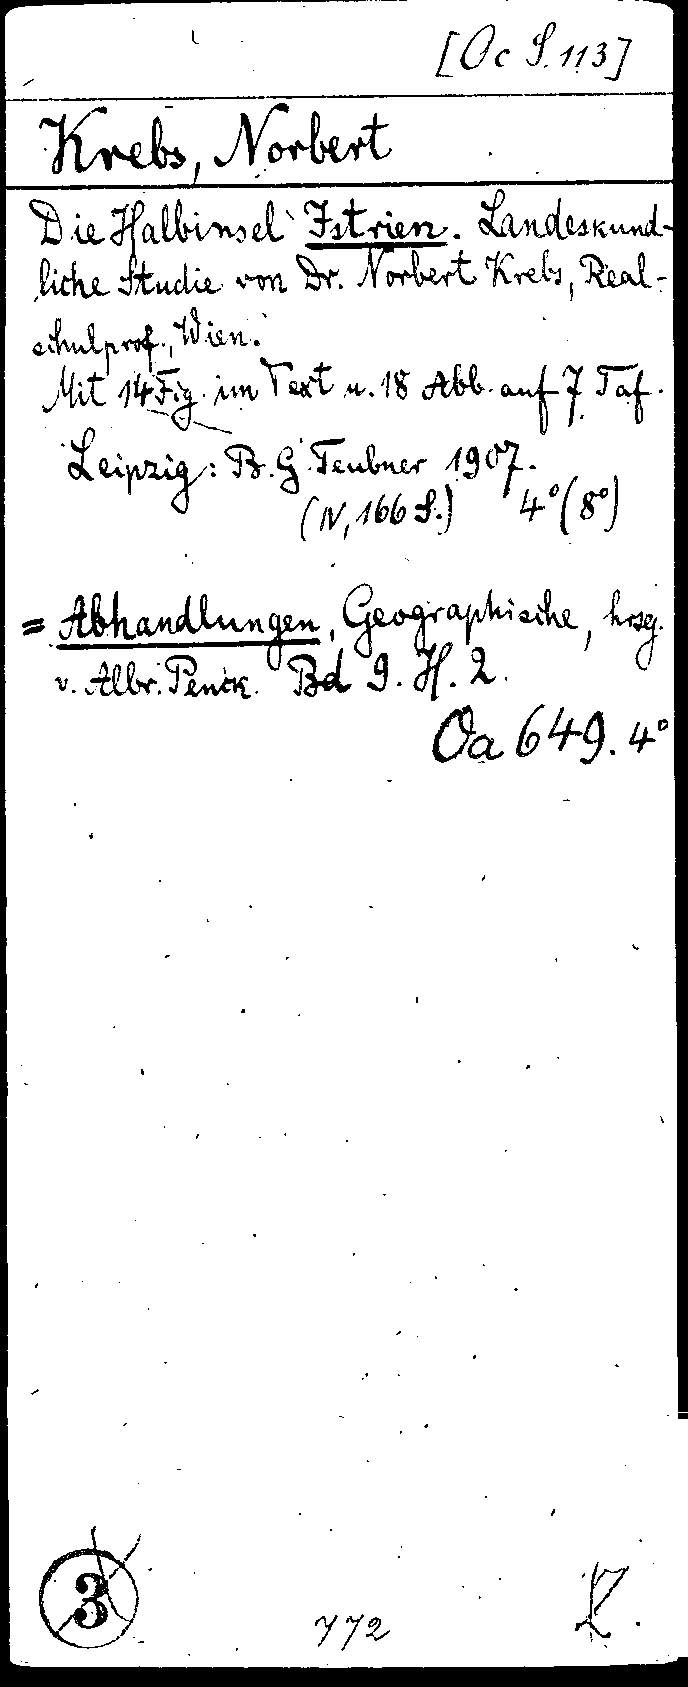 [Oc S. 113]
Krebs, Norbert
Die Halbinsel Istrien. Landeskund-
liche Studie von Dr. Norbert Krebs, Real-
schulprof., Wien.
Mit 14 Fig. im Text u. 18 Abb. auf 7 Taf.
Leipzig: B. G. Teubner 1907.
(IV, 166 S.) 4° (8°)
= Abhandlungen, Geographische, hrsg.
v. Albr. Penck. Bd 9. H. 2.
Oa 649. 4°
3
772